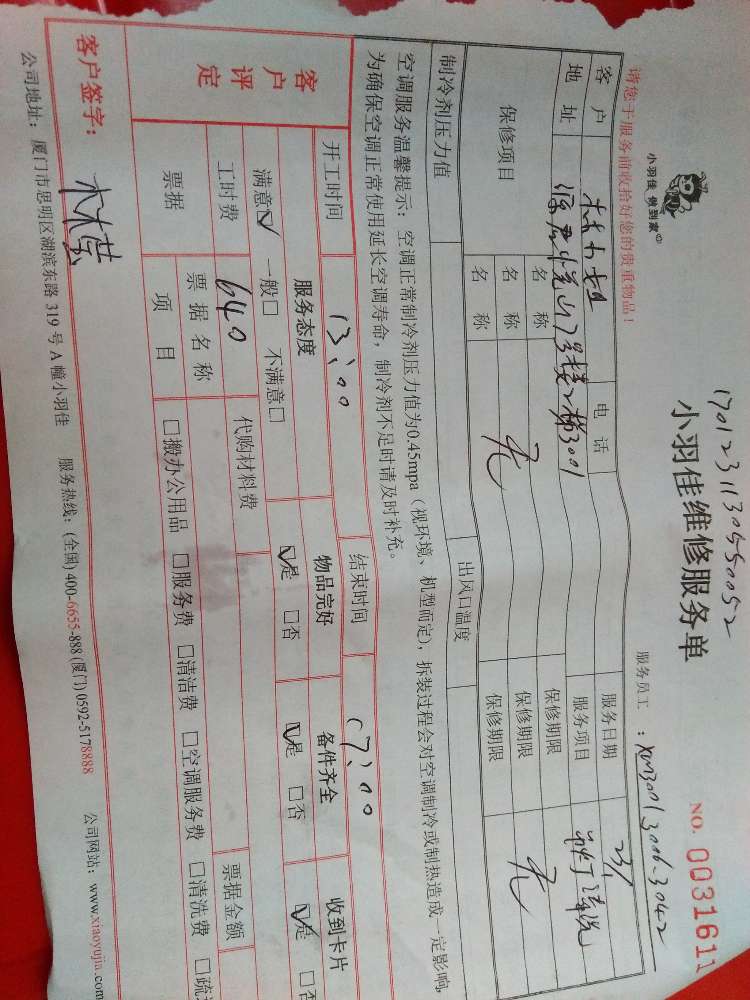 1701231130550052
小羽佳 做到家
小羽佳维修服务单
NO. 0031611
请您于服务前收拾好您的贵重物品！
服务员工：XM3001 3006-3042
客户 电话 服务日期 23/1
地址 7号楼2梯3001 服务项目 清洗
保修项目 名称 保修期限
名称 无 保修期限 无
名称 保修期限
制冷剂压力值 出风口温度
空调服务温馨提示：空调正常制冷剂压力值为0.45mpa（视环境、机型而定），拆装过程会对空调制冷或制热造成一定影响，
为确保空调正常使用延长空调寿命，制冷剂不足时请及时补充。
开工时间 13:00 结束时间 17:00
客户评定 服务态度 物品完好 备件齐全 收到卡片
满意☑ 一般□ 不满意□ ☑是 □否 ☑是 □否 ☑是 □否
工时费 640 代购材料费
票据 票据名称 票据金额
项目 □搬办公用品 □服务费 □清洁费 □空调服务费 □清洗费
客户签字：林莹
公司地址：厦门市思明区湖滨东路 319 号 A 幢小羽佳 服务热线：(全国) 400-6655-888 (厦门) 0592-5178888 公司网站：www.xiaoyujia.com